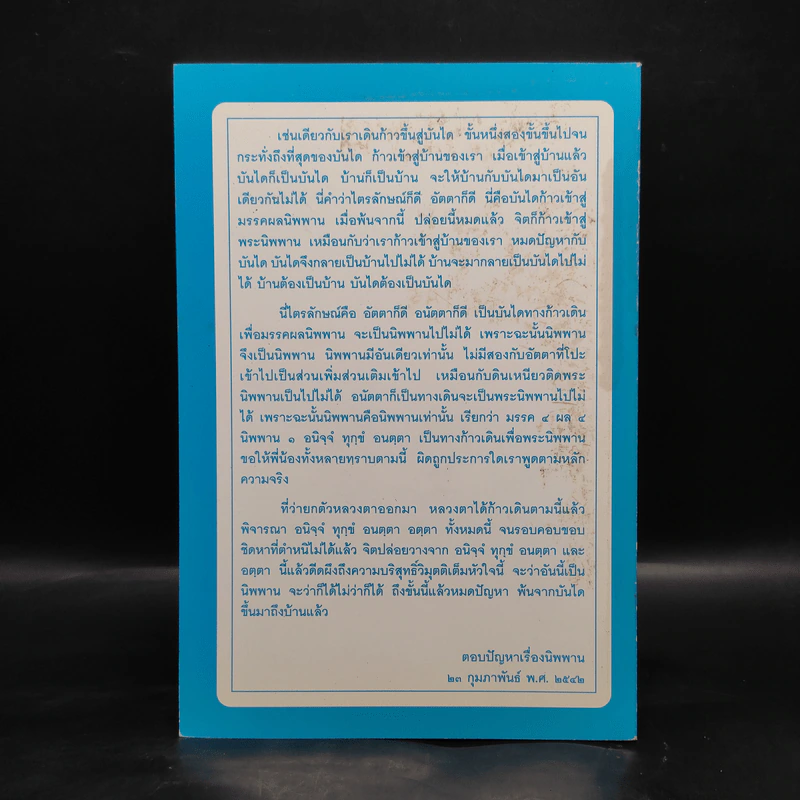 เช่นเดียวกับเราเดินก้าวขึ้นสู่บันได ขั้นหนึ่งสองขั้นขึ้นไปจน
กระทั่งถึงที่สุดของบันได ก้าวเข้าสู่บ้านของเรา เมื่อเข้าสู่บ้านแล้ว
บันไดก็เป็นบันได บ้านก็เป็นบ้าน จะให้บ้านกับบันไดมาเป็นอัน
เดียวกันไม่ได้ นี่คำว่าไตรลักษณ์ก็ดี อัตตาก็ดี นี่คือบันไดก้าวเข้าสู่
มรรคผลนิพพาน เมื่อพ้นจากนี้ ปล่อยนี้หมดแล้ว จิตก็ก้าวเข้าสู่
พระนิพพาน เหมือนกับว่าเราก้าวเข้าสู่บ้านของเรา หมดปัญหากับ
บันได บันไดจึงกลายเป็นบ้านไปไม่ได้ บ้านจะมากลายเป็นบันไดไปไม่
ได้ บ้านต้องเป็นบ้าน บันไดต้องเป็นบันได
นี่ไตรลักษณ์คือ อัตตาก็ดี อนัตตาก็ดี เป็นบันไดทางก้าวเดิน
เพื่อมรรคผลนิพพาน จะเป็นนิพพานไปไม่ได้ เพราะฉะนั้นนิพพาน
จึงเป็นนิพพาน นิพพานมีอันเดียวเท่านั้น ไม่มีสองกับอัตตาที่โปะ
เข้าไปเป็นส่วนเพิ่มส่วนเติมเข้าไป เหมือนกับดินเหนียวติดพระ
นิพพานเป็นไปไม่ได้ อนัตตาก็เป็นทางเดินจะเป็นพระนิพพานไปไม่
ได้ เพราะฉะนั้นนิพพานคือนิพพานเท่านั้น เรียกว่า มรรค ๔ ผล ๔
นิพพาน ๑ อนิจฺจํ ทุกฺขํ อนตฺตา เป็นทางก้าวเดินเพื่อพระนิพพาน
ขอให้พี่น้องทั้งหลายทราบตามนี้ ผิดถูกประการใดเราพูดตามหลัก
ความจริง
ที่ว่ายกตัวหลวงตาออกมา หลวงตาได้ก้าวเดินตามนี้แล้ว
พิจารณา อนิจฺจํ ทุกฺขํ อนตฺตา อตฺตา ทั้งหมดนี้ จนรอบคอบขอบ
ชิดหาที่ตำหนิไม่ได้แล้ว จิตปล่อยวางจาก อนิจฺจํ ทุกฺขํ อนตฺตา และ
อตฺตา นี้แล้วดีดผึงถึงความบริสุทธิ์วิมุตติเต็มหัวใจนี้ จะว่าอันนี้เป็น
นิพพาน จะว่าก็ได้ไม่ว่าก็ได้ ถึงขั้นนี้แล้วหมดปัญหา พ้นจากบันได
ขึ้นมาถึงบ้านแล้ว
ตอบปัญหาเรื่องนิพพาน
๒๓ กุมภาพันธ์ พ.ศ. ๒๕๔๒